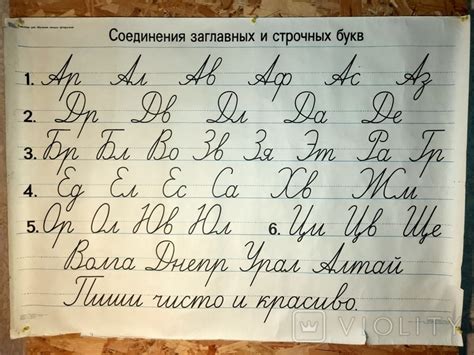 Соединения заглавных и строчных букв
1. Ар Ал Ав Аф Ас Аз
2. Др Дв Дл Да Де
3. Бр Бл Во Зв Зя Эт Ра Гр
4. Ед Ел Ес Са Хв Жм
5. Ор Ол Юв Юл 6. Ци Цв Ще
Волга Днепр Урал Алтай
Пиши чисто и красиво.
VIOLITY